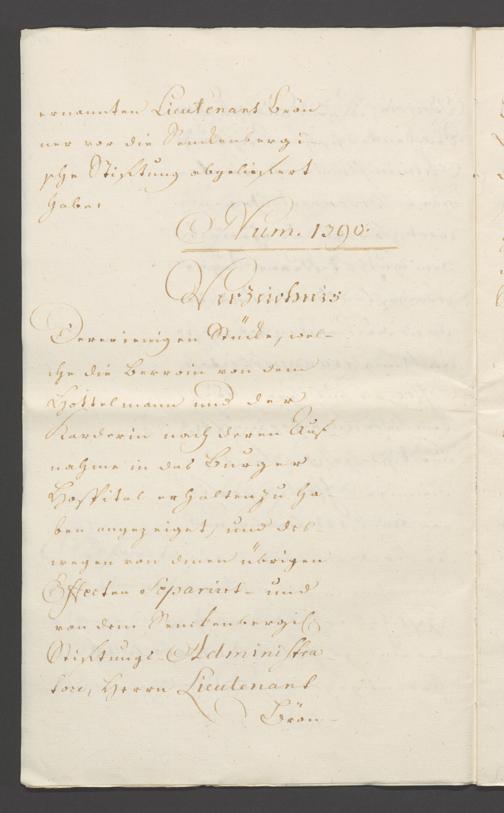 ernannten Lieutenant Brön
ner vor die Senckenbergi
sche Stiftung abgeliefert
habe.
Num. 1390.
Verzeichnis
Dererienigen Stücke, wel-
che die Berroin von dem
Hottelmann und der
Karderin nach deren Auf
nahme in das Burger
Hospital erhalten zu ha
ben angezeiget, und des
wegen von denen übrigen
Effecten Separirt- und
von dem Senckenbergis
Stiftungs-Administra
tore, Herrn Lieutenant
Brön-